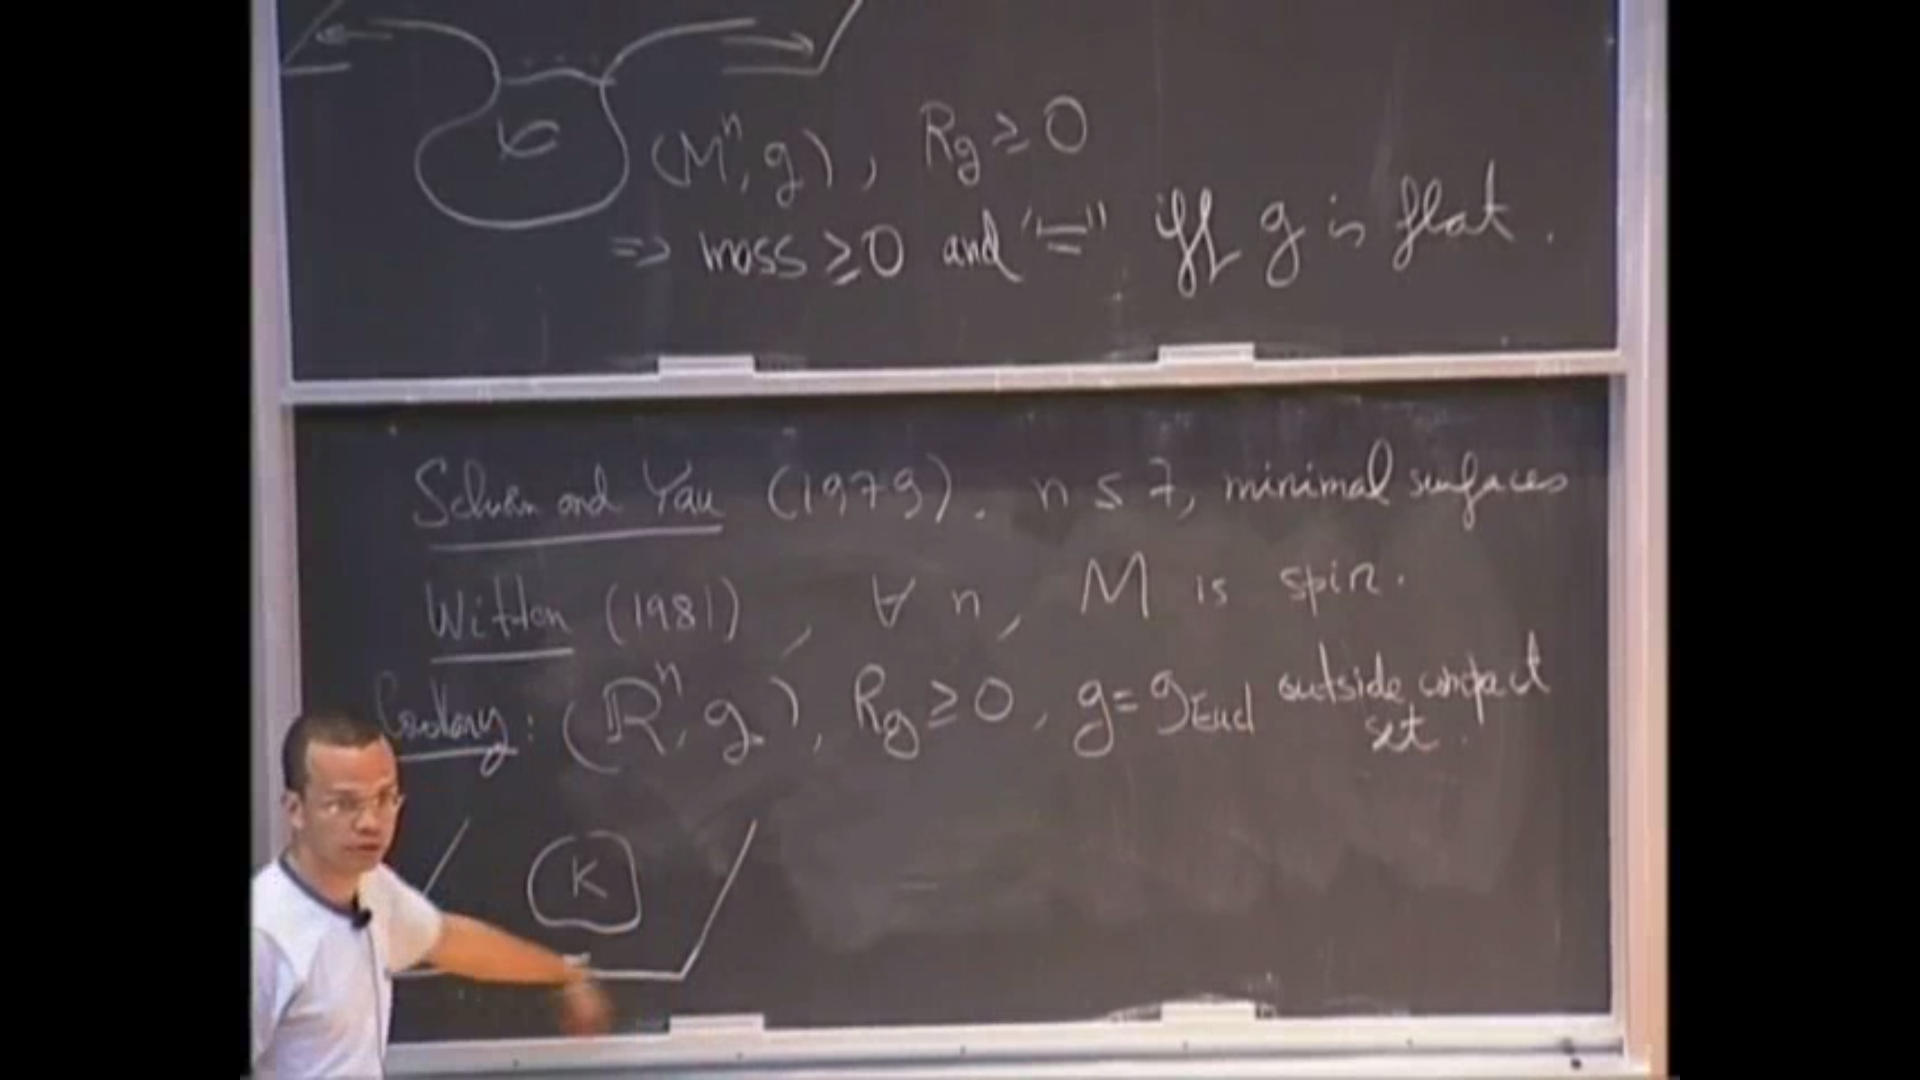 (Mⁿ, g), R_g ≥ 0
=> mass ≥ 0 and "=" iff g is flat.
Schoen and Yau (1979). n ≤ 7, minimal surfaces
Witten (1981), ∀ n, M is spin.
Corollary: (ℝⁿ, g), R_g ≥ 0, g = g_Eucl outside compact
set.
K